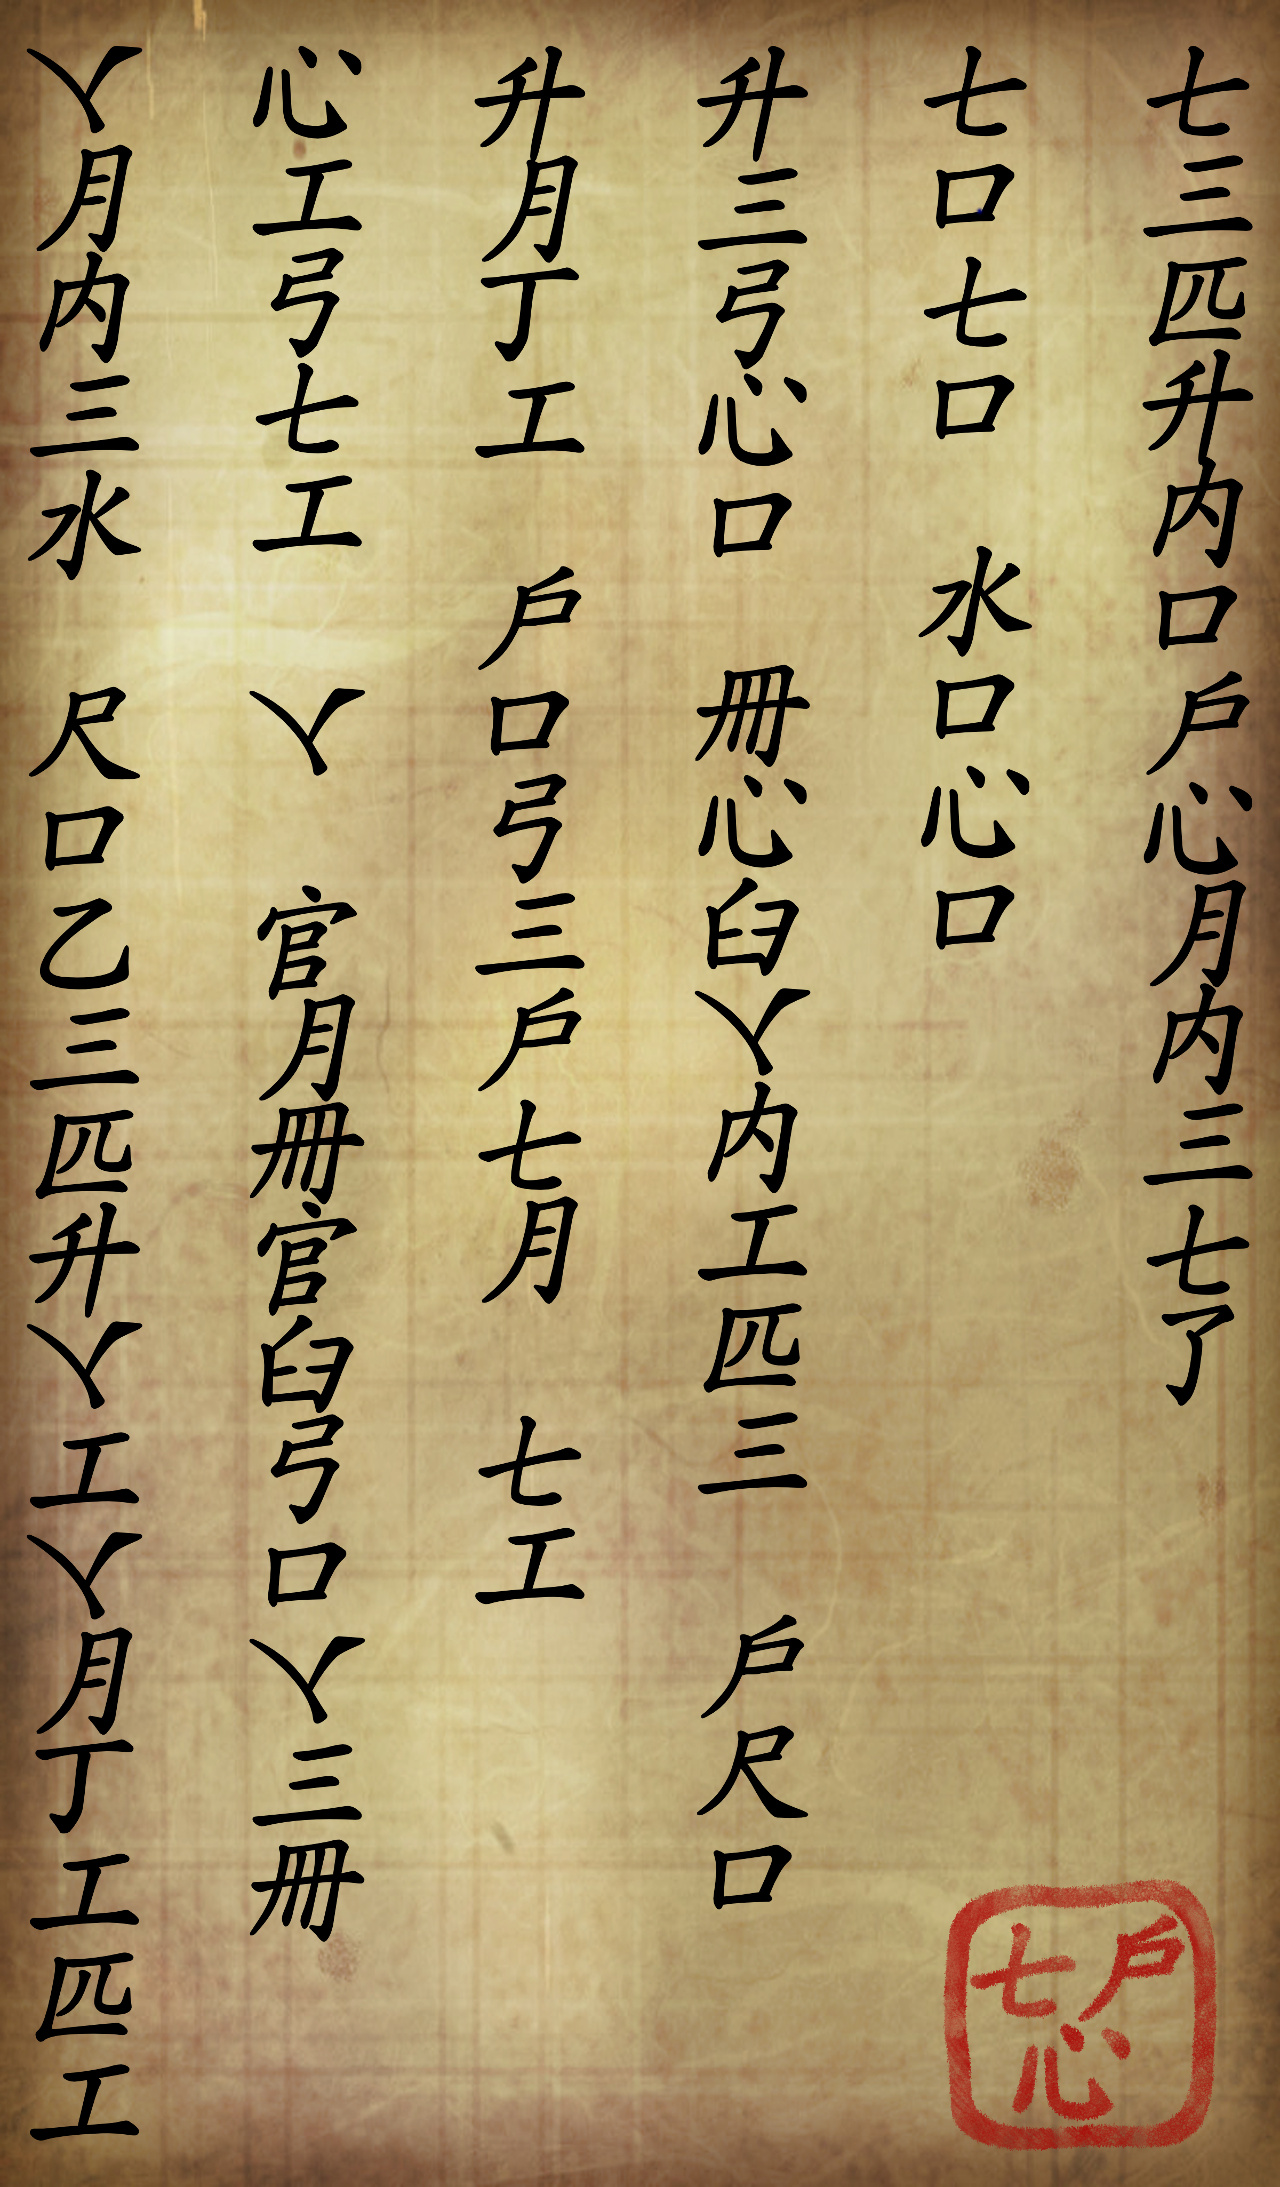 七三匹升内口戶心月内三七了
七口七口 水口心口
升三弓心口 冊心臼丫内工匹三 戶尺口
升月丁工 戶口弓三戶七月 七工
心工弓七工 丫 官月冊官臼弓口丫三冊
丫月内三水 尺口乙三匹升丫工丫月丁工匹工
戶七心